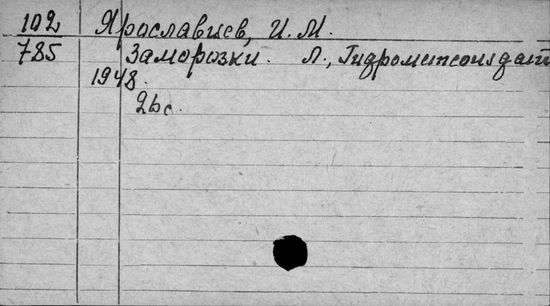 102 Ярославцев, И. М.
785 Заморозки. Л., Гидрометеоиздат
1948.
26 с.